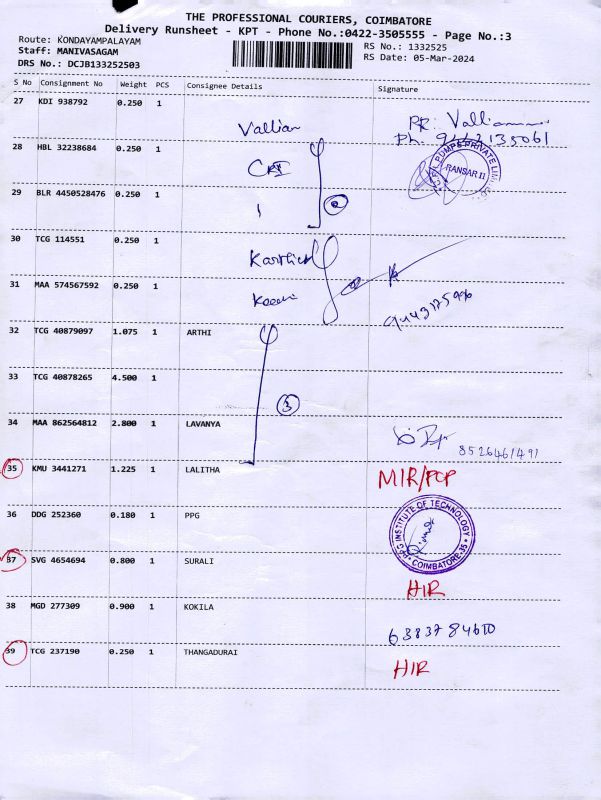 THE PROFESSIONAL COURIERS, COIMBATORE
Delivery Runsheet - KPT - Phone No.:0422-3505555 - Page No.:3
Route: KONDAYAMPALAYAM
RS No.: 1332525
Staff: MANIVASAGAM
RS Date: 05-Mar-2024
DRS No.: DCJB133252503
S No Consignment No Weight PCS Consignee Details Signature
27 KDI 938792 0.250 1 Vallian
28 HBL 32238684 0.250 1 CRI
PUMPS PRIVATE
RANSAR II
29 BLR 4450528476 0.250 1
2
30 TCG 114551 0.250 1
31 MAA 574567592 0.250 1
32 TCG 40879097 1.075 1 ARTHI
33 TCG 40878265 4.500 1
3
34 MAA 862564812 2.800 1 LAVANYA
8526461491
35 KMU 3441271 1.225 1 LALITHA
36 DDG 252360 0.180 1 PPG
PPG INSTITUTE OF TECHNOLOGY
COIMBATORE-35
37 SVG 4654694 0.800 1 SURALI
HIR
38 MGD 277309 0.900 1 KOKILA
39 TCG 237190 0.250 1 THANGADURAI
HIR